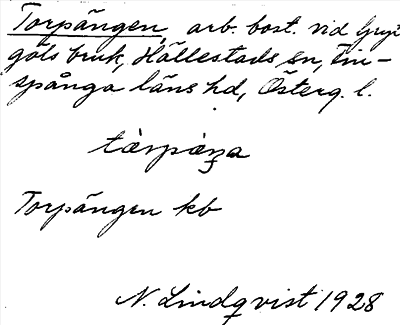 Torpängen, arb. bost. vid Gryt-
göls bruk, Hällestads sn, Fin-
spånga läns hd, Österg. l.
Torpängen kb
N. Lindqvist 1928